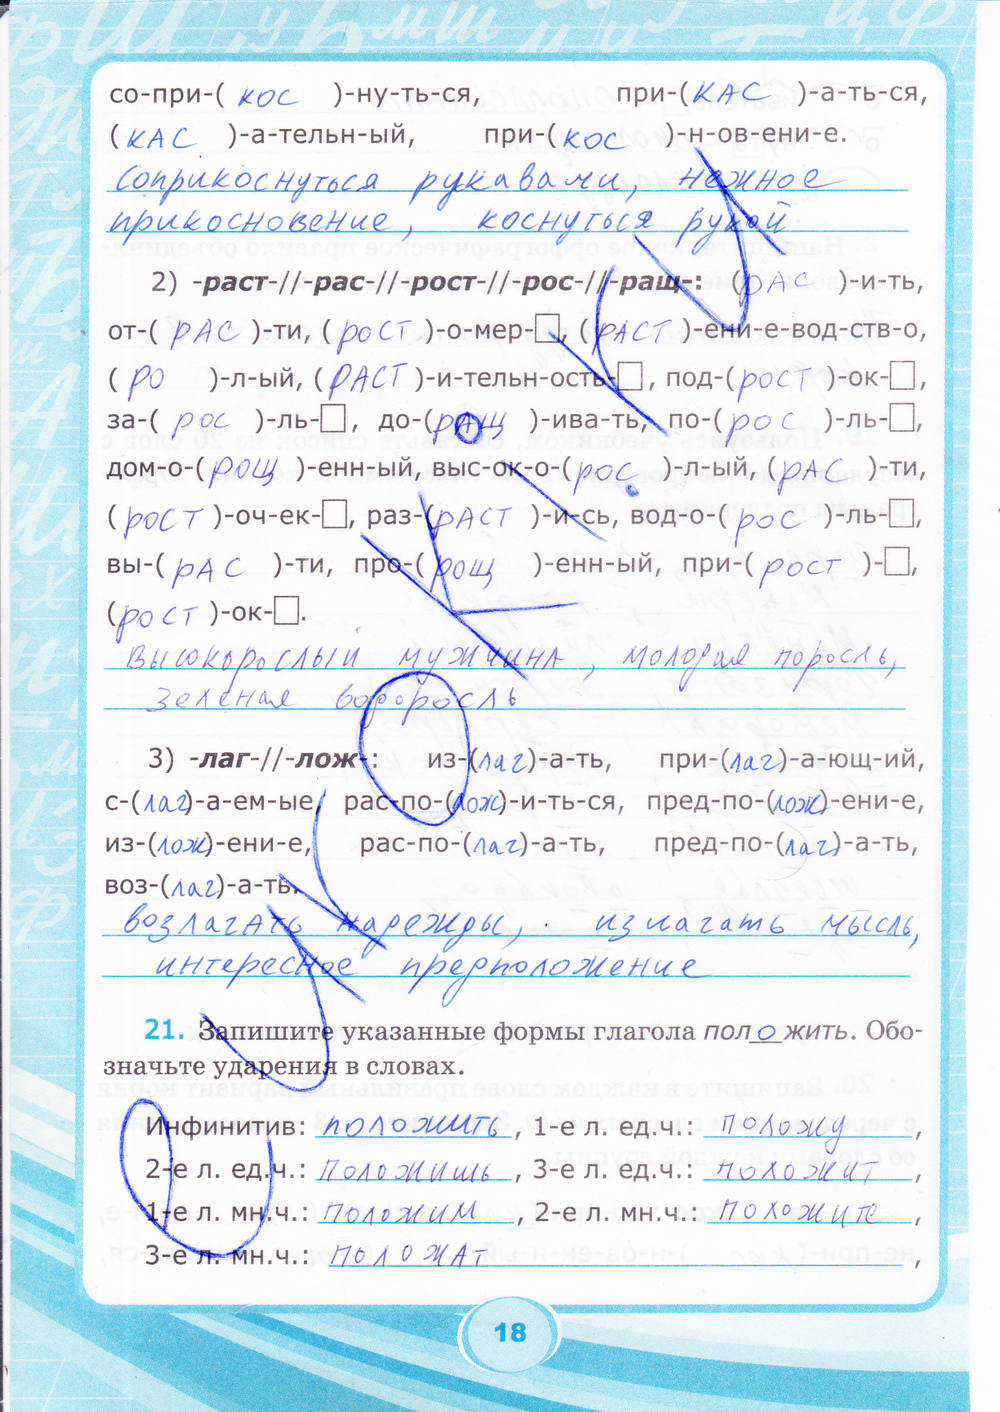 со-при-( кос )-ну-ть-ся, при-( КАС )-а-ть-ся,
( КАС )-а-тельн-ый, при-( кос )-н-ов-ени-е.
Соприкоснуться рукавами, нежное
прикосновение, коснуться рукой
2) -раст-//-рас-//-рост-//-рос-//-ращ-: ( рАС )-и-ть,
от-( рАС )-ти, ( роСТ )-о-мер-□, ( рАСТ )-ени-е-вод-ств-о,
( РО )-л-ый, ( РАСТ )-и-тельн-ость-□, под-( рост )-ок-□,
за-( рос )-ль-□, до-( рАЩ )-ива-ть, по-( рос )-ль-□,
дом-о-( рощ )-енн-ый, выс-ок-о-( рос. )-л-ый, ( рАС )-ти,
( рост )-оч-ек-□, раз-( рАСТ )-и-сь, вод-о-( рос )-ль-□,
вы-( рАС )-ти, про-( рощ )-енн-ый, при-( рост )-□,
( рост )-ок-□.
Высокорослый мужчина, молодая поросль,
зеленая водоросль
3) -лаг-//-лож-: из-(лаг)-а-ть, при-(лаг)-а-ющ-ий,
с-(лаг)-а-ем-ые, рас-по-(лож)-и-ть-ся, пред-по-(лож)-ени-е,
из-(лож)-ени-е, рас-по-(лаг)-а-ть, пред-по-(лаг)-а-ть,
воз-(лаг)-а-ть.
возлагать надежды, излагать мысль,
интересное предположение
21. Запишите указанные формы глагола пол о жить. Обо-
значьте ударения в словах.
Инфинитив: положить, 1-е л. ед.ч.: положу,
2-е л. ед.ч.: положишь, 3-е л. ед.ч.: положит,
1-е л. мн.ч.: положим, 2-е л. мн.ч.:
3-е л. мн.ч.: положат,
18